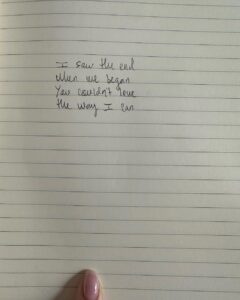 I saw the end
when we began
You couldn't love
the way I can